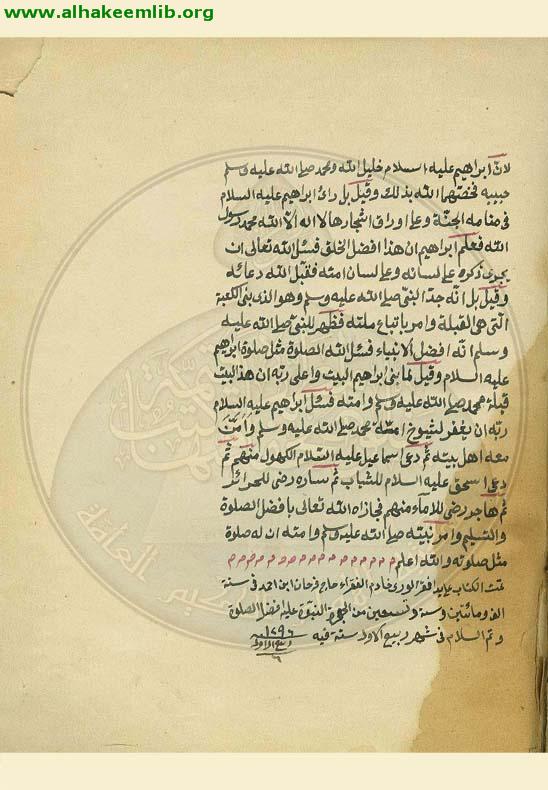 www.alhakeemlib.org
لان ابراهيم عليه السلام خليل الله ومحمد صلے الله عليه وسلم
حبيبه فخصهما الله بذلك وقيل بل رائ ابراهيم عليه السلام
فى منامه الجنة وعلے اوراق اشجارها لا اله الا الله محمد رسول
الله فعلم ابراهيم ان هذا افضل الخلق فسئل الله تعالى ان
يجرى ذكره على لسانه وعلى لسان امته فقبل الله دعائه
وقيل بل انه جد النبى صلے الله عليه وسلم وهو الذى بنى الكعبة
التى هى القبلة وامر باتباع ملته فظهر للنبى صلے الله عليه
وسلم انه افضل الانبياء فسئل الله الصلوة مثل صلوة ابراهيم
عليه السلام وقيل لما بنى ابراهيم البيت واعلى ربه ان هذا البيت
قبلة محمد صلے الله عليه وسلم وامته فسئل ابراهيم عليه السلام
ربه ان يغفر لشيوخ امته محمد صلے الله عليه وسلم وامن
معه اهل بيته ثم دعى اسماعيل عليه السلام الكهول منهم ثم
دعى اسحق عليه السلام للشباب ثم ساره رضى للحرائر
ثم هاجر رضى للاماء منهم فجازاه الله تعالى بافضل الصلوة
والتسليم وامر نبيته صلے الله عليه وسلم وامته ان له صلوة
مثل صلوته والله اعلم م م م م م م م م م م م م م م
تمت الكتاب افقر الورى خادم الفقراء حاج فرحان ابن احمد فى سنة
الف ومائتين وستة وتسعين من الهجرة النبوية عليه افضل الصلوة
وتم السلام فى شهر ربيع الاول سنة فيه ١٢٩٦
٦